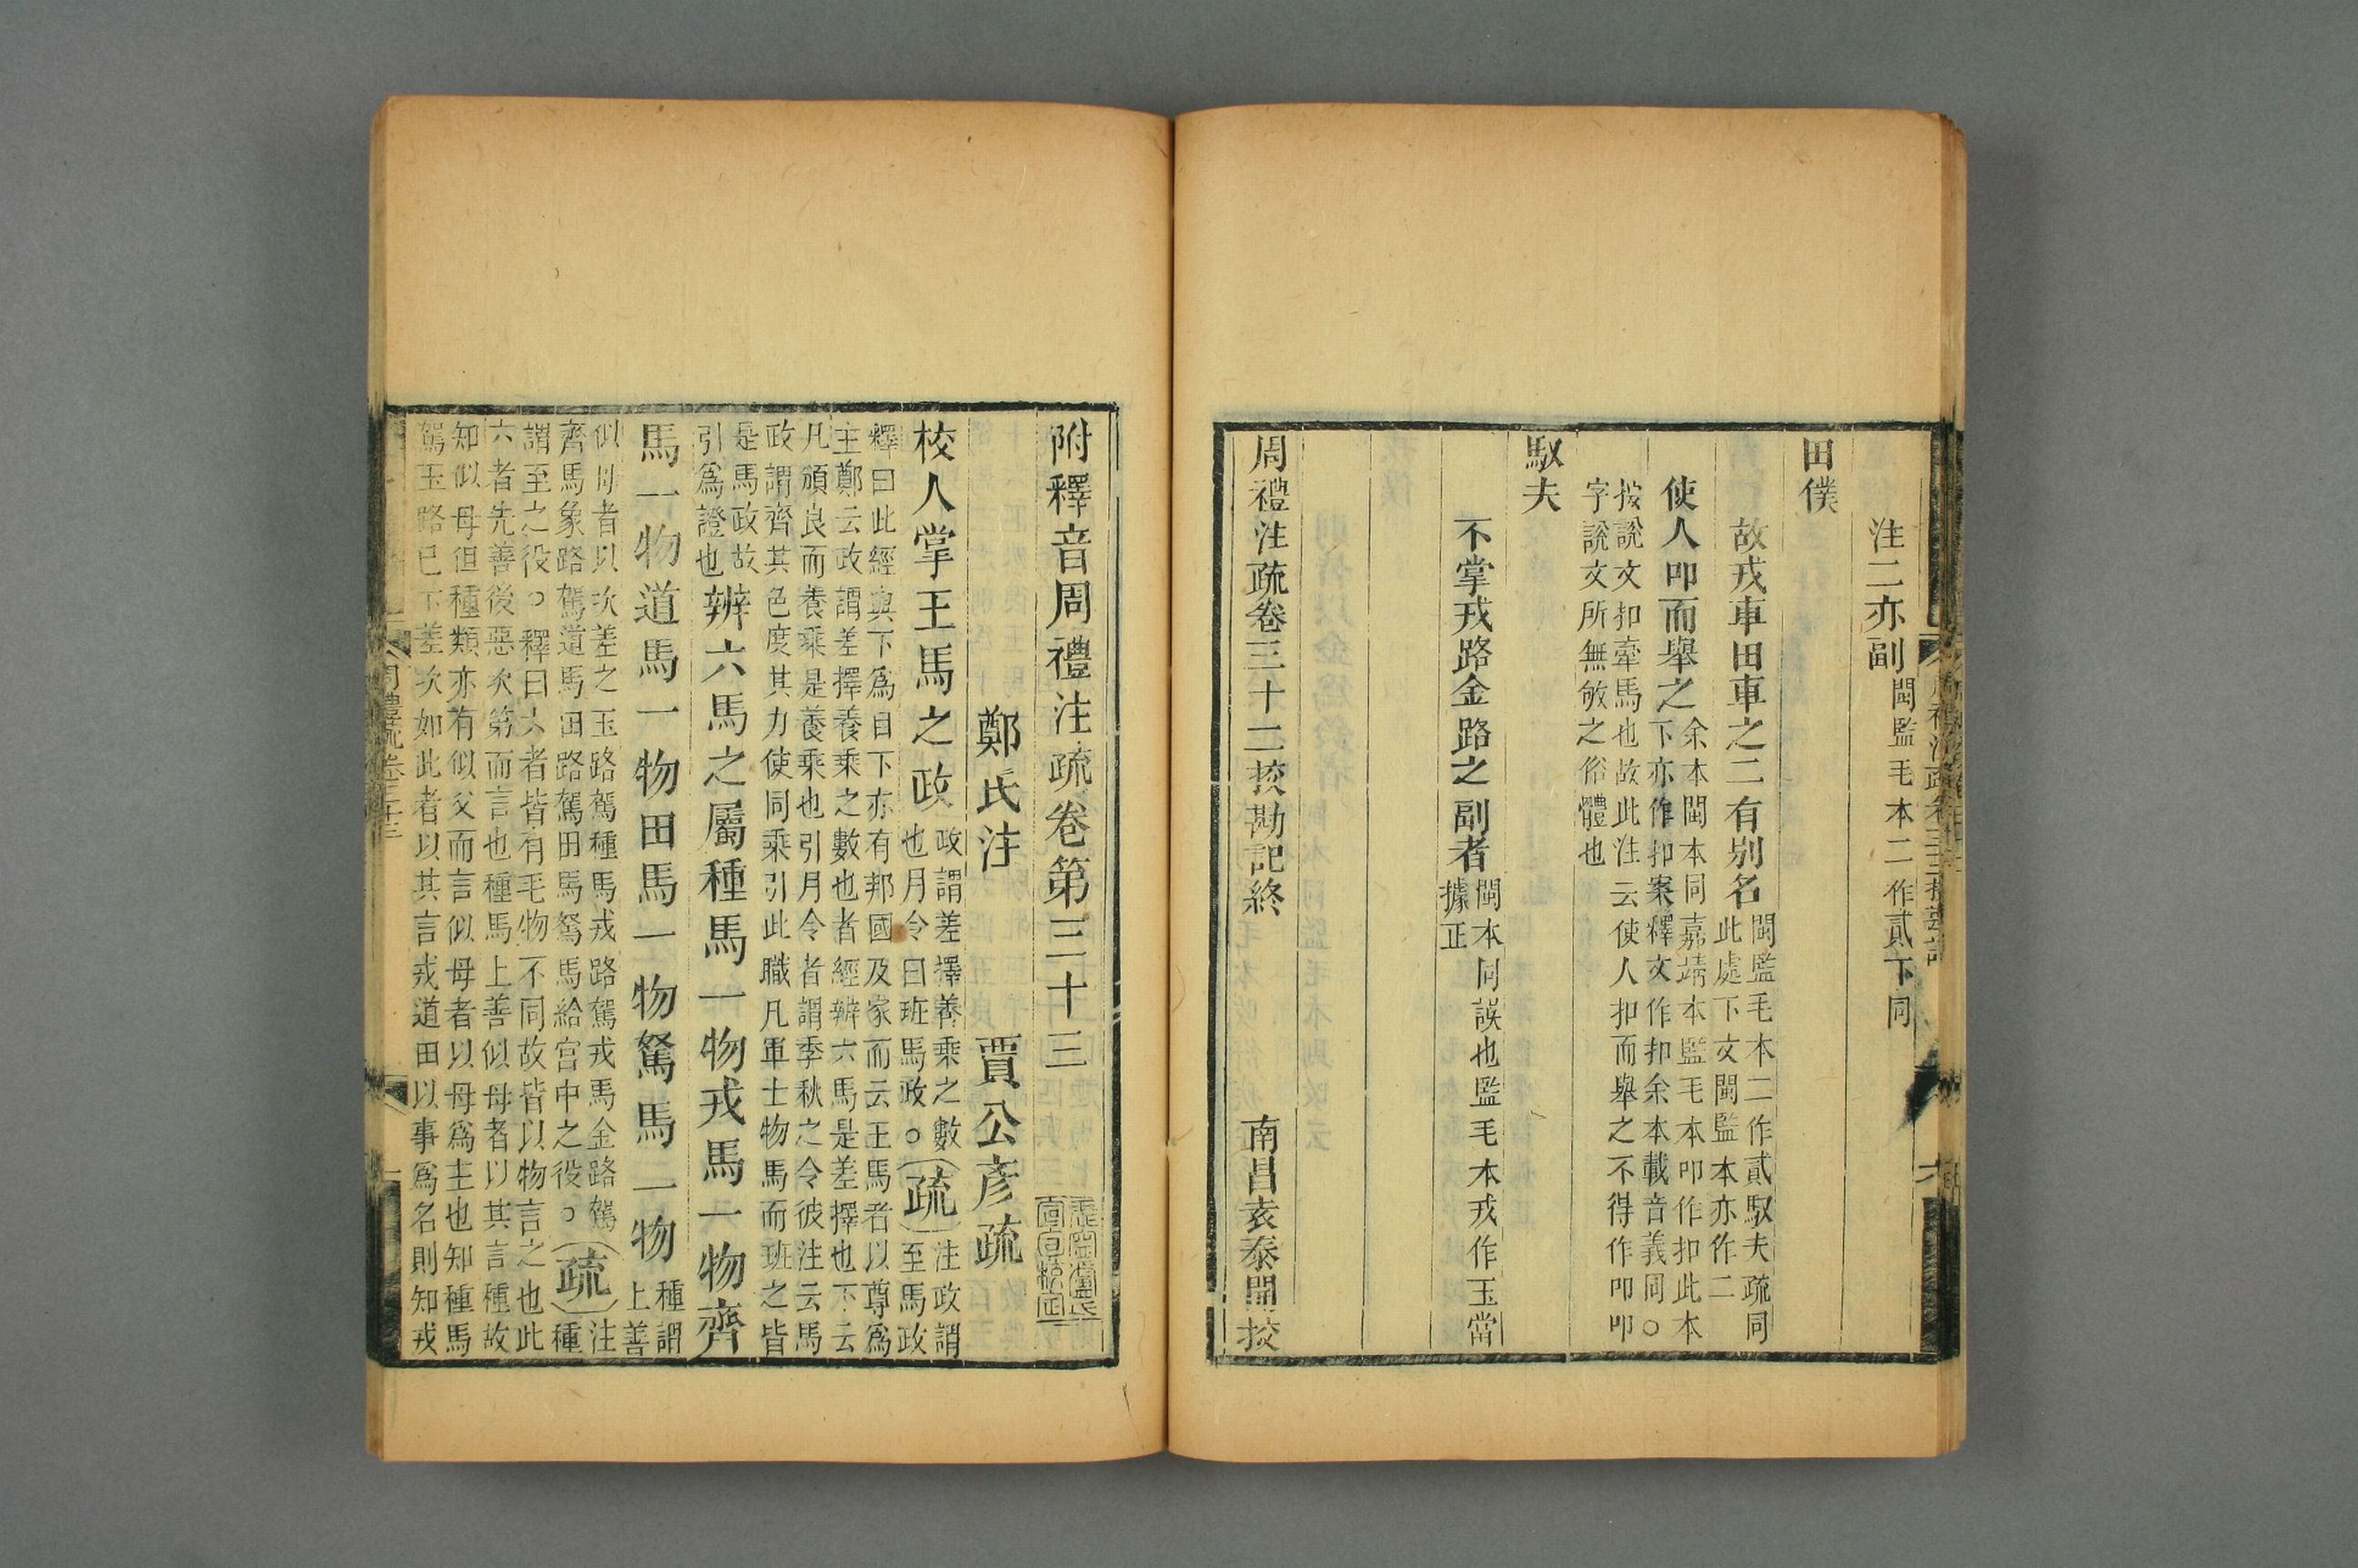 注二亦副閩監毛本二作貳下同
田僕
故戎車田車之二有別名閩監毛本二作貳馭夫疏同
此處下文閩監本亦作二
使人叩而舉之余本閩本同嘉靖本監毛本叩作扣此本
下亦作扣案釋文作扣余本載音義同○
按說文扣牽馬也故此注云使人扣而舉之不得作叩叩
字說文所無敂之俗體也
馭夫
不掌戎路金路之副者閩本同誤也監毛本戎作玉當
據正
周禮注疏卷三十二挍勘記終
南昌袁泰開挍
附釋音周禮注疏卷第三十三
鄭氏注
賈公彥疏
校人掌王馬之政政謂差擇養乘之數
也月令曰班馬政○疏注政謂
至馬政
釋曰此經與下為目下亦有邦國及家而云王馬者以尊為
主鄭云政謂差擇養乘之數也者經辨六馬是差擇也下云
凡頒良而養乘是養乘也引月令者謂季秋之令彼注云馬
政謂齊其色度其力使同乘引此職凡軍士物馬而班之皆
是馬政故
引爲證也辨六馬之屬種馬一物戎馬一物齊
馬一物道馬一物田馬一物駑馬一物種謂
上善
似母者以次差之玉路駕種馬戎路駕戎馬金路駕
齊馬象路駕道馬田路駕田馬駑馬給宮中之役○疏注
種
謂至之役○釋曰六者皆有毛物不同故皆以物言之也此
六者先善後惡次第而言也種馬上善似母者以其言種故
知似母但種類亦有似父而言似母者以母爲主也知種馬
駕玉路已下差次如此者以其言戎道田以事爲名則知戎
周禮疏卷三十三